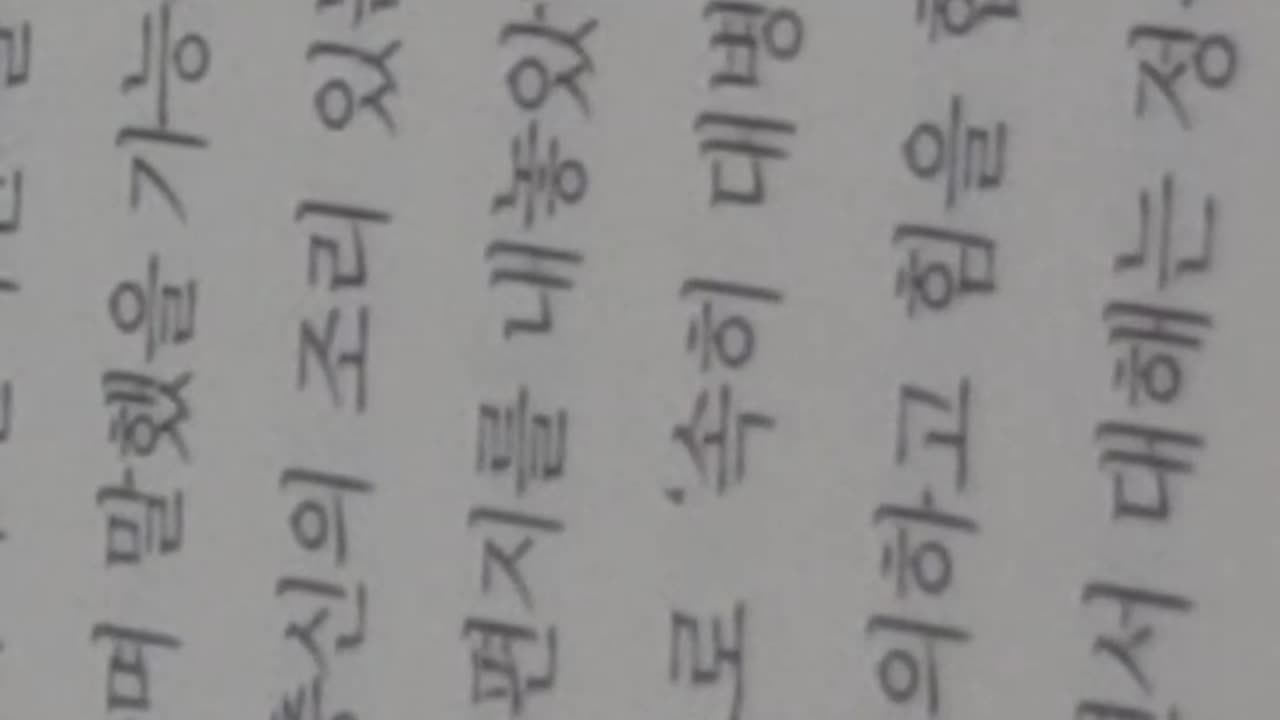 며 말했을 가능
신의 조리 있
편지를 내놓았
로 '속히 대병
의하고 힘을
서 대해는 정